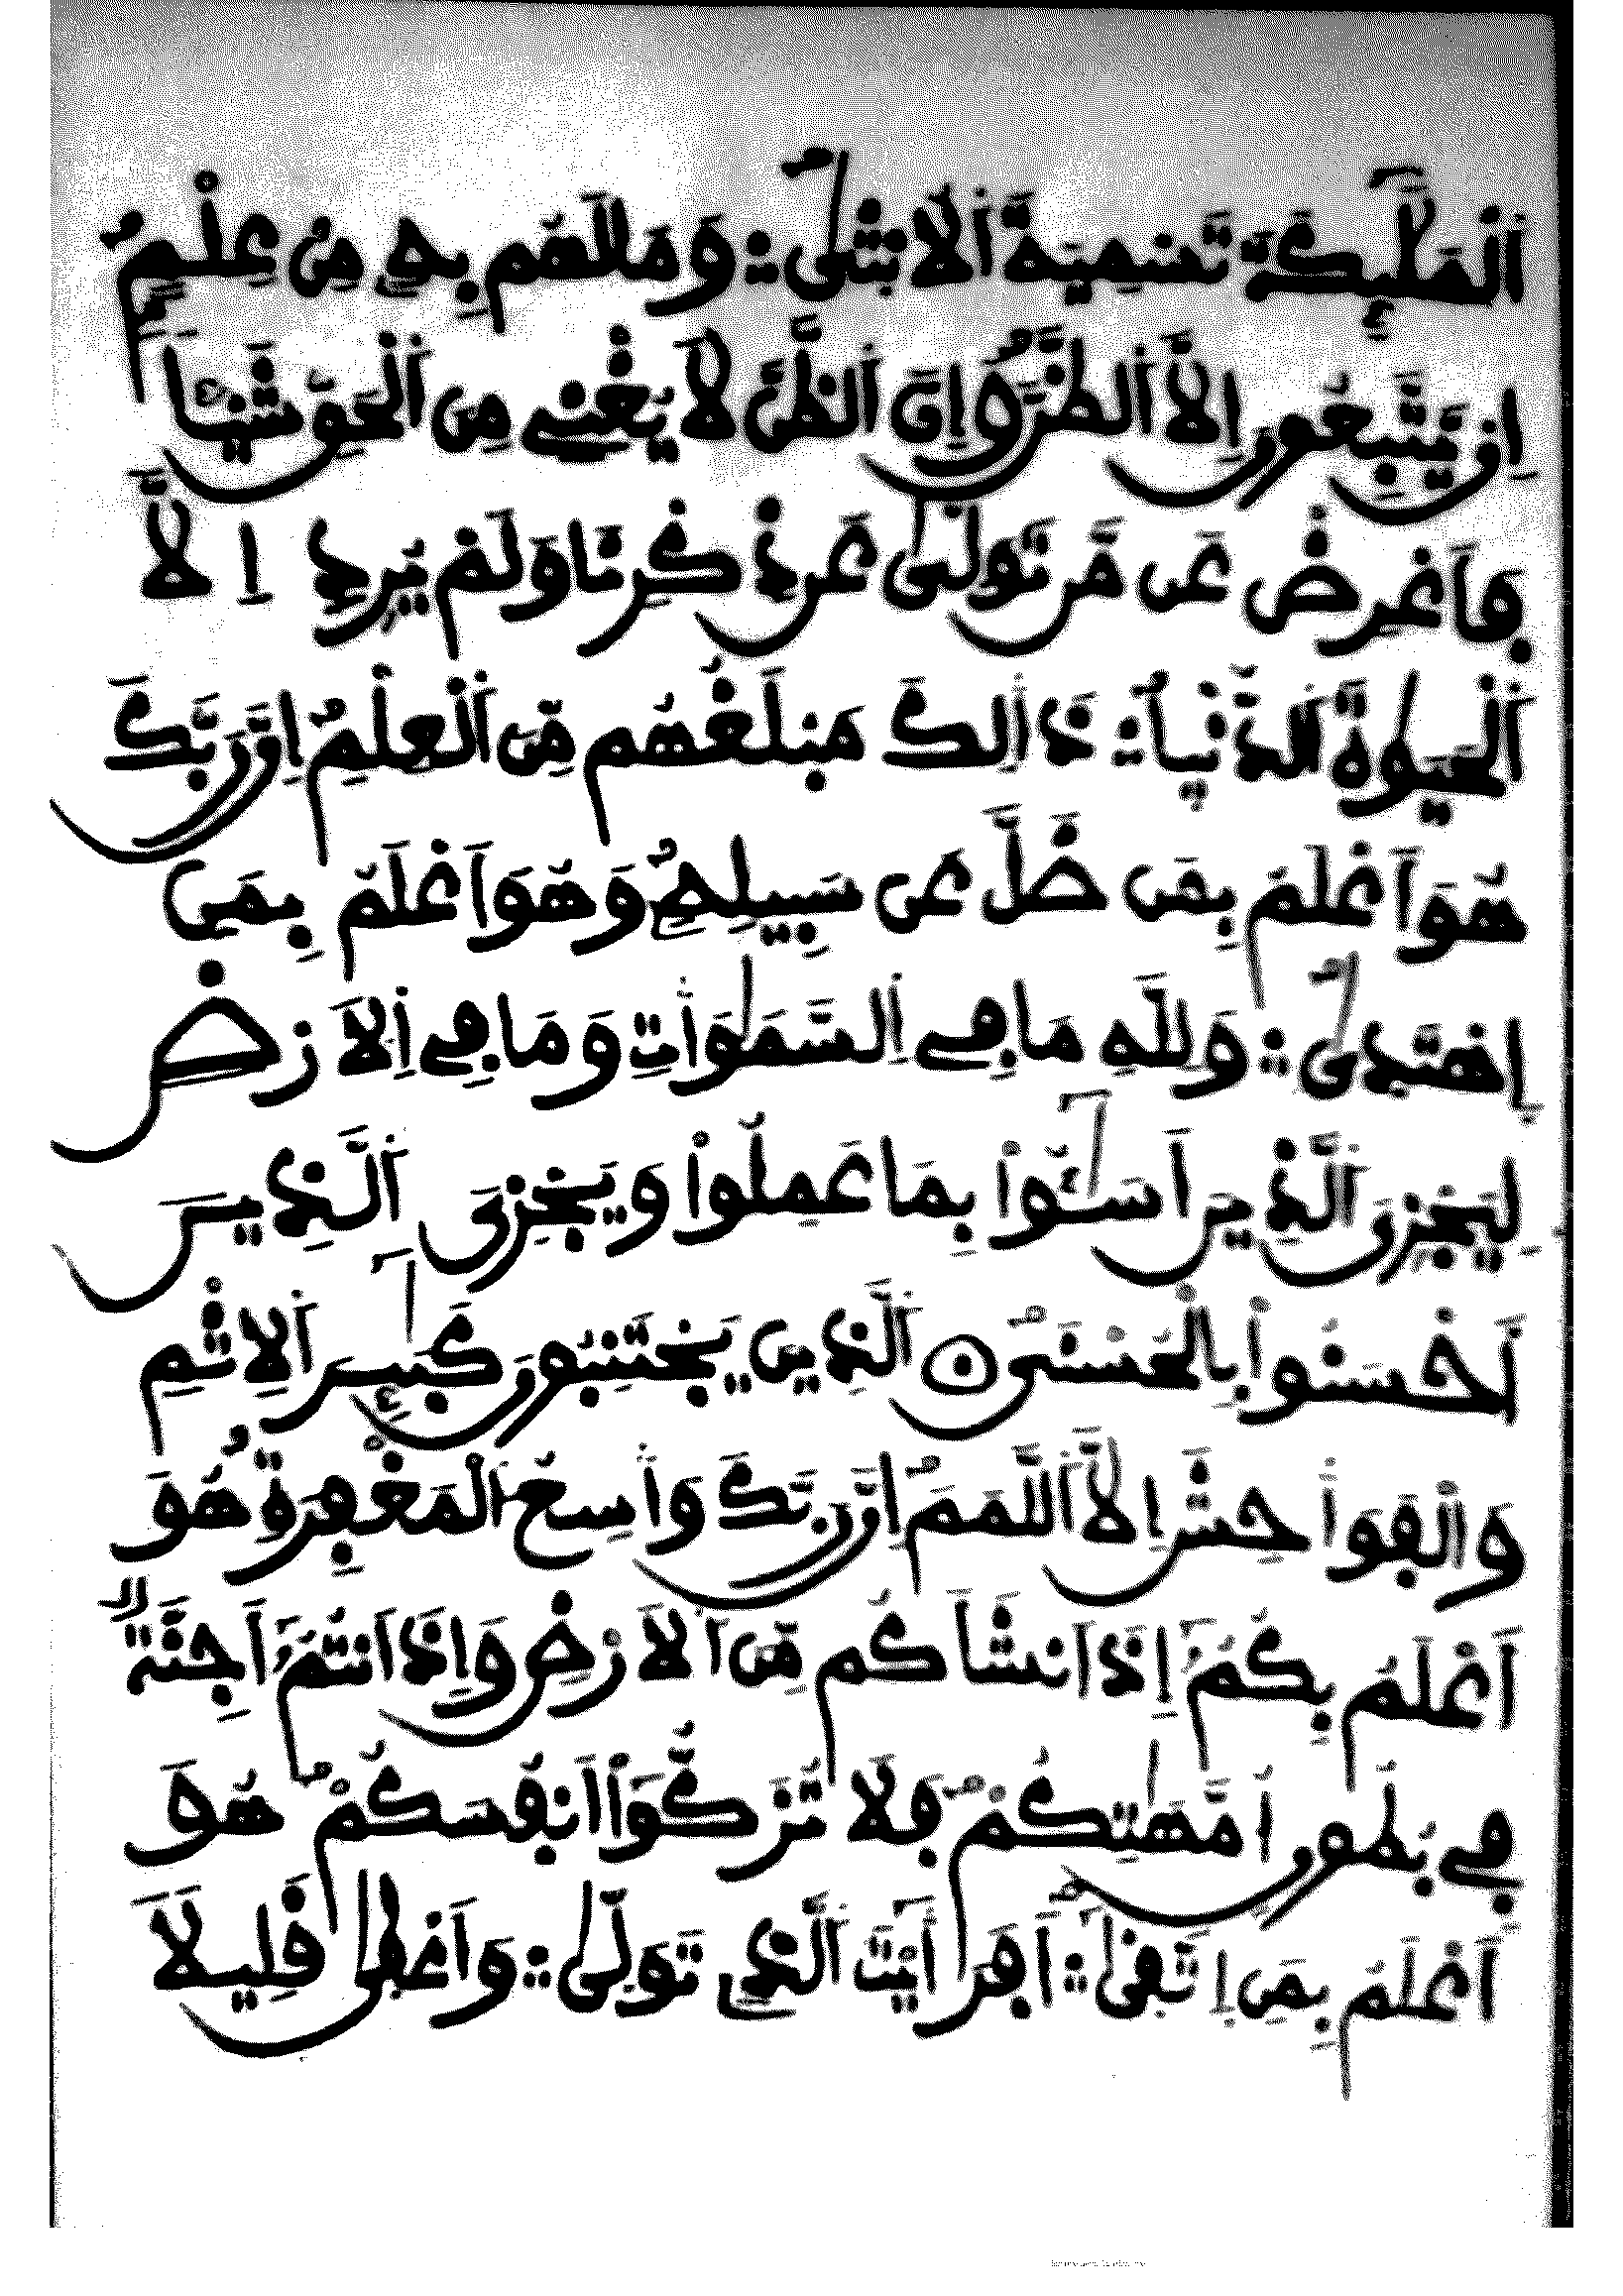 اَلْمَلَٰٓئِكَةَ تَسْمِيَةَ اَلُانثٰىۖ وَمَا لَهُم بِهِۦ مِنْ عِلْمٍ
اِنْ يَّتَّبِعُونَ إِلَّا اَلظَّنَّ وَإِنَّ اَلظَّنَّ لَا يُغْنِے مِنَ اَلْحَقِّ شَيْـٔاً
فَأَعْرِضْ عَن مَّن تَوَلّٰىٰ عَن ذِكْرِنَا وَلَمْ يُرِدِ اِلَّا
اَلْحَيَوٰةَ اَلدُّنْيَاۖ ذَٰلِكَ مَبْلَغُهُم مِّنَ اَلْعِلْمِ إِنَّ رَبَّكَ
هُوَ أَعْلَمُ بِمَن ضَلَّ عَن سَبِيلِهِۦ وَهُوَ أَعْلَمُ بِمَنِ
اِهْتَدٰىۖ وَلِلهِ مَا فِے اِلسَّمَٰوَٰتِ وَمَا فِے اِلَارْضِ
لِيَجْزِيَ اَلذِينَ أَسَٰٓـُٔواْ بِمَا عَمِلُواْ وَيَجْزِيَ اَلَّذِينَ
أَحْسَنُواْ بِالْحُسْنَى اَلَّذِينَ يَجْتَنِبُونَ كَبَٰٓئِرَ اَلِاثْمِ
وَالْفَوَٰحِشَ إِلَّا اَللَّمَمَ إِنَّ رَبَّكَ وَٰسِعُ اُلْمَغْفِرَةِ هُوَ
أَعْلَمُ بِكُمُۥٓ إِذَ اَنشَأَكُم مِّنَ اَلَارْضِ وَإِذَ اَنتُمُۥٓ أَجِنَّةٌ
فِے بُطُونِ أُمَّهَٰتِكُمْ فَلَا تُزَكُّوٓاْ أَنفُسَكُمْ هُوَ
أَعْلَمُ بِمَنِ اِتَّقٰىٓۖ أَفَرَٰٓيْتَ اَلَّذِے تَوَلّٰىۖ وَأَعْطٰى قَلِيلًا